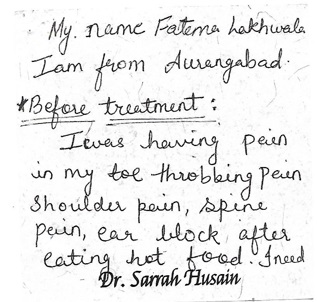 My name Fatema Lakhwala
I am from Aurangabad.
*Before treatment:
I was having pein
in my toe throbbing pein
shoulder pein, spine
pein, ear block after
eating hot food. I need
Dr. Sarrah Husain